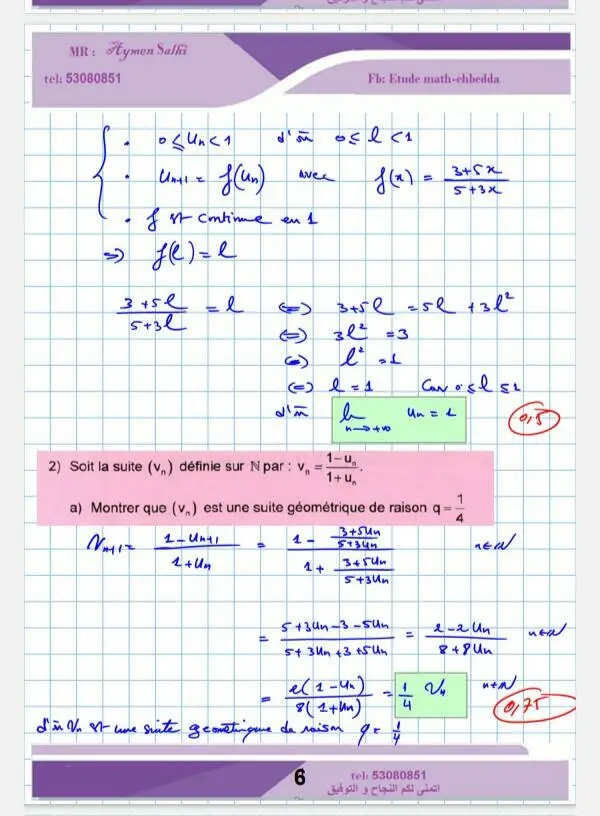 MR : Aymen Salhi
tel: 53080851
Fb: Etude math-chbedda
• 0 ≤ Un < 1 d'où 0 ≤ l < 1
• Un+1 = f(Un) avec f(x) = (3+5x)/(5+3x)
• f est continue en 1
⇒ f(l) = l
(3+5l)/(5+3l) = l ⇔ 3+5l = 5l + 3l²
⇔ 3l² = 3
⇔ l² = 1
⇔ l = 1 Car 0 ≤ l ≤ 1
d'où lim n→+∞ Un = 1
0,5
2) Soit la suite (vₙ) définie sur ℕ par : vₙ = (1−uₙ)/(1+uₙ).
a) Montrer que (vₙ) est une suite géométrique de raison q = 1/4
Vn+1 = (1 − Un+1)/(1 + Un) = (1 − (3+5Un)/(5+3Un))/(1 + (3+5Un)/(5+3Un)) n∈ℕ
= (5+3Un−3−5Un)/(5+3Un+3+5Un) = (2−2Un)/(8+8Un) n∈ℕ
= 2(1−Un)/8(1+Un) = 1/4 Vn n∈ℕ
0,75
d'où Vn est une suite géométrique de raison q = 1/4
6
tel: 53080851
اتمنى لكم النجاح و التوفيق